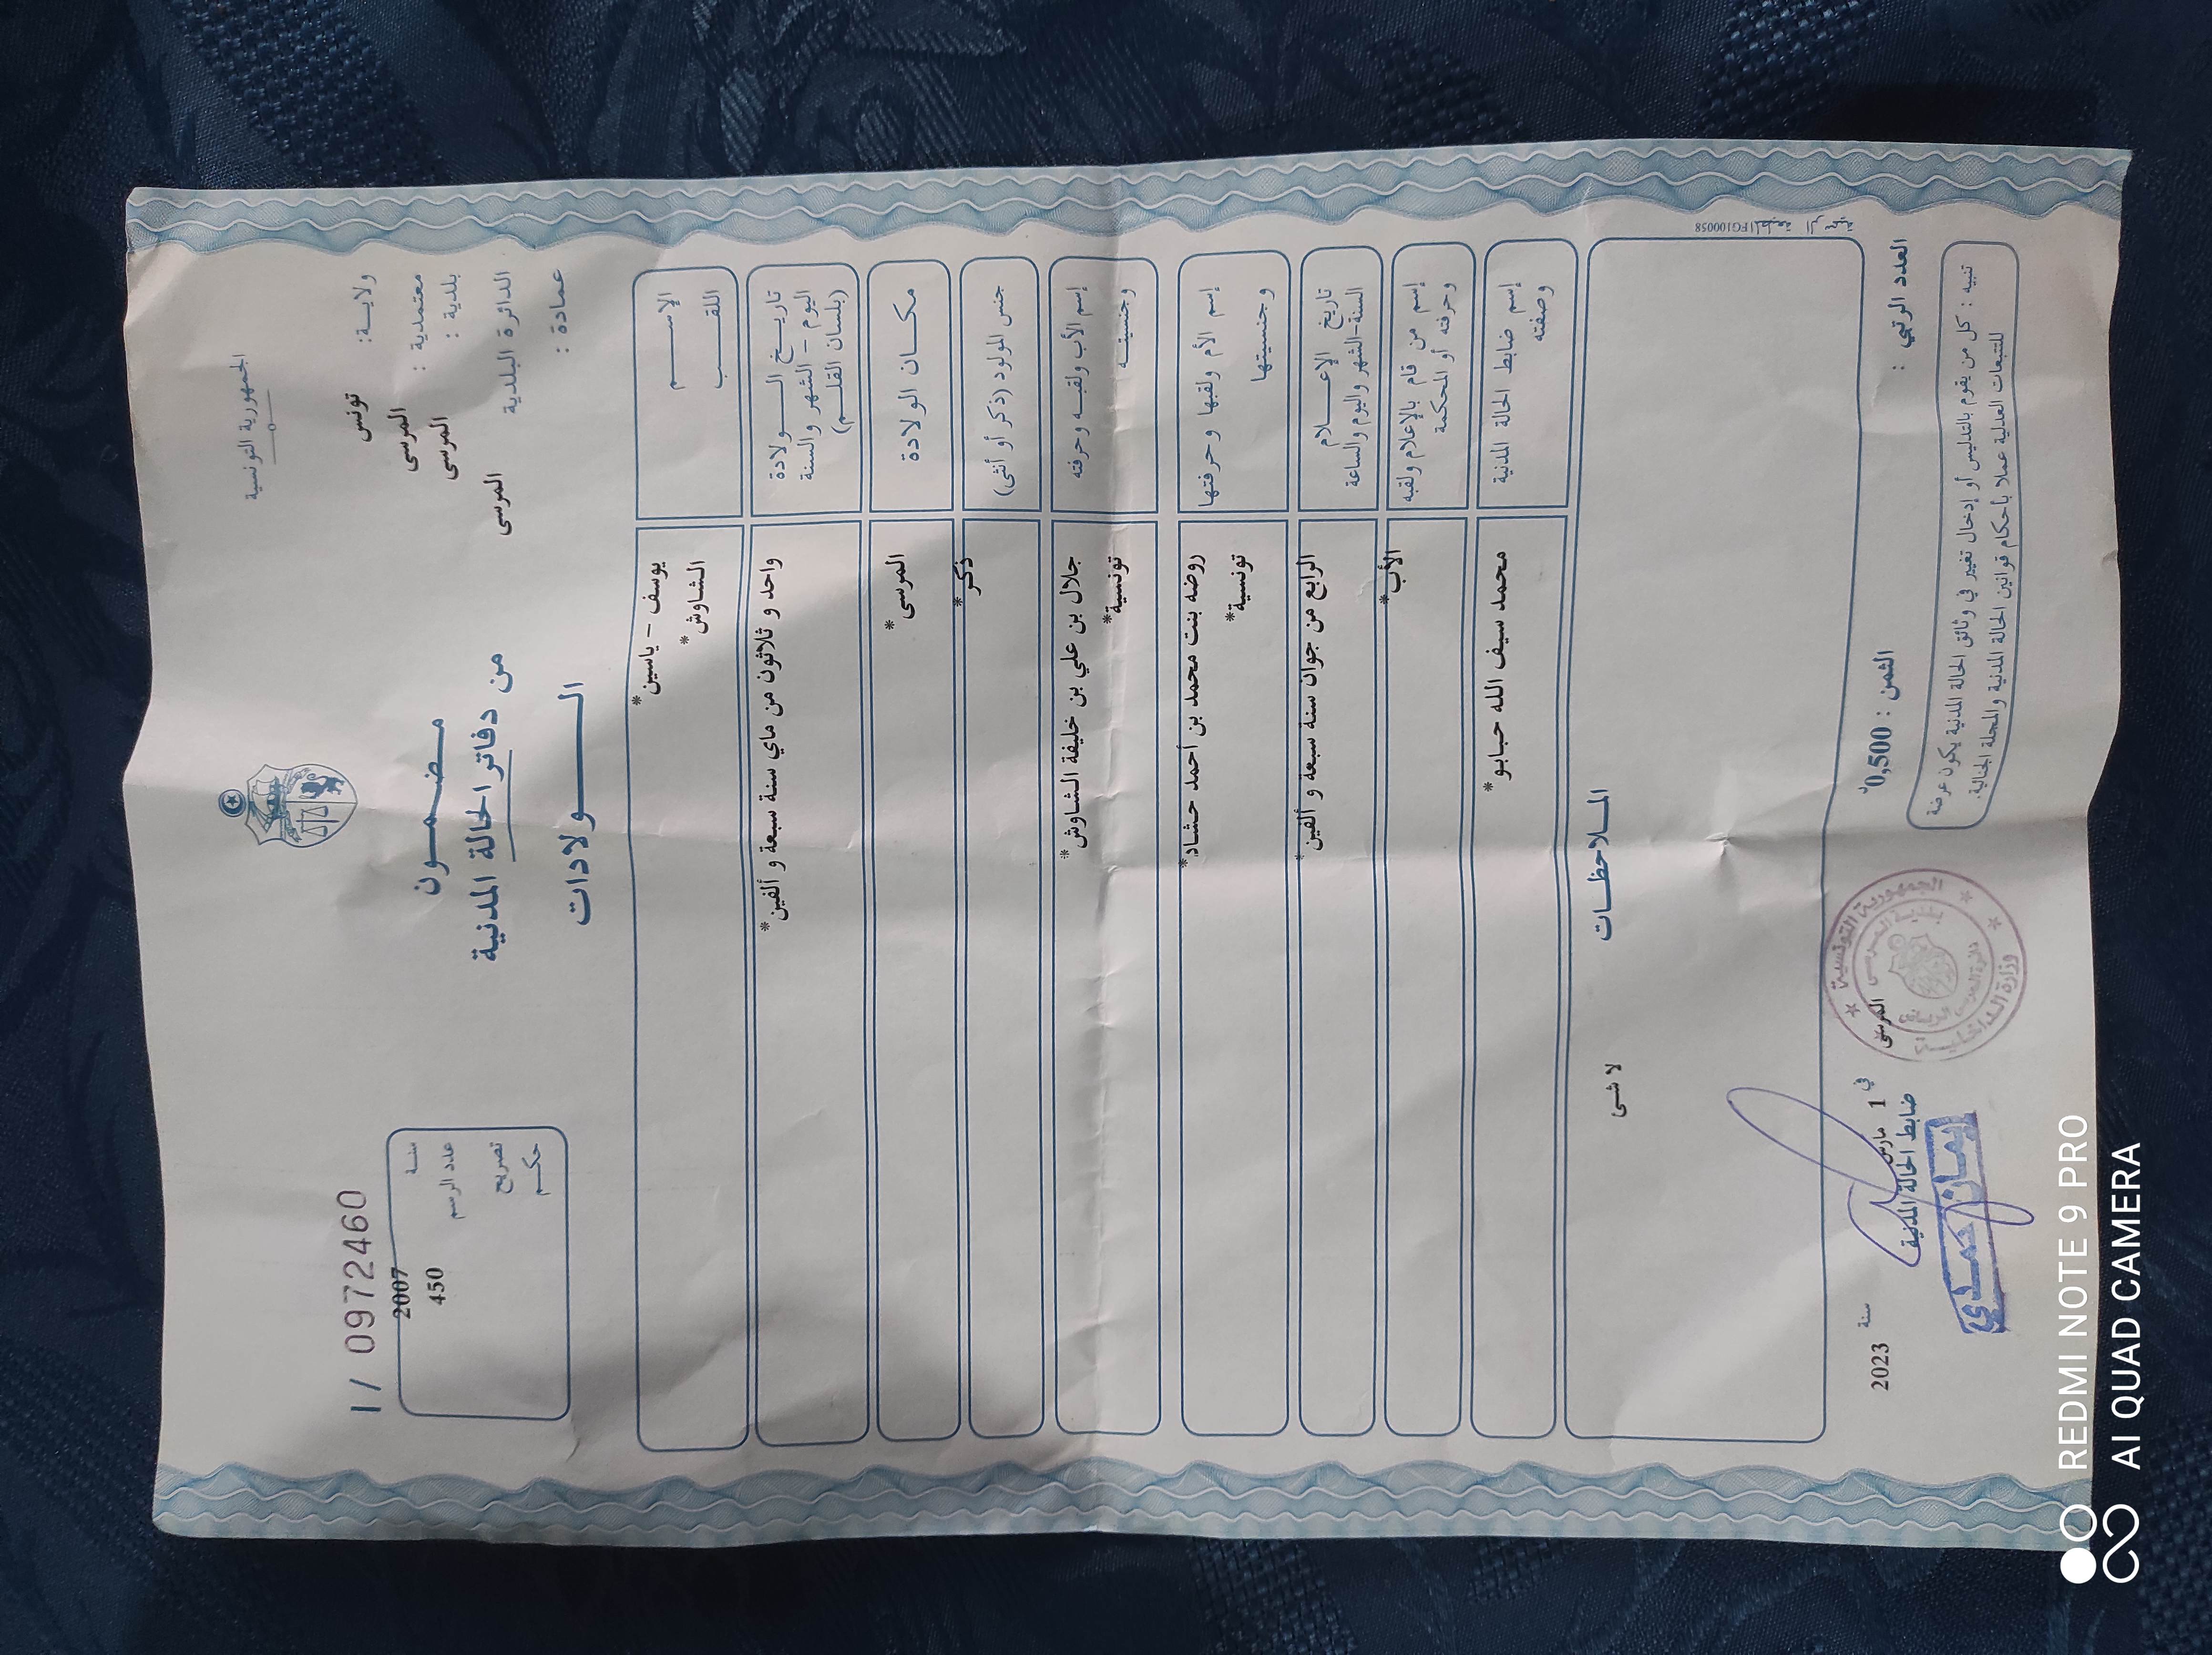 الجمهورية التونسية
ولاية: تونس
معتمدية : المرسى
بلدية : المرسى
الدائرة البلدية المرسى
عمادة :
مضمون
من دفاتر الحالة المدنية
الولادات
I/ 0972460
سنة 2007
عدد الرسم 450
تصريح
حكم
الإسم يوسف - ياسين*
اللقب الشاوش*
تاريخ الولادة واحد و ثلاثون من ماي سنة سبعة و ألفين*
اليوم - الشهر والسنة
(بلسان القلم)
مكان الولادة المرسى*
جنس المولود (ذكر أو أنثى) ذكر*
إسم الأب ولقبه وحرفته جلال بن علي بن خليفة الشاوش*
وجنسيته تونسية*
إسم الأم ولقبها وحرفتها روضه بنت محمد بن أحمد حشاد*
وجنسيتها تونسية*
تاريخ الإعلام الرابع من جوان سنة سبعة و ألفين*
السنة-الشهر واليوم والساعة
إسم من قام بالإعلام ولقبه الأب*
وحرفته أو المحكمة
إسم ضابط الحالة المدنية محمد سيف الله حبابو*
وصفته
الملاحظات
لا شئ
المطبعة الرسمية FG100058
العدد الرتبي :
الثمن : 0,500د
المرسى في 1 مارس سنة 2023
ضابط الحالة المدنية
إيمان حمدي
الجمهورية التونسية
وزارة الداخلية
بلدية المرسى
تنبيه : كل من يقوم بالتدليس أو إدخال تغيير في وثائق الحالة المدنية يكون عرضة
للتتبعات العدلية عملا بأحكام قوانين الحالة المدنية والمجلة الجنائية.
REDMI NOTE 9 PRO
AI QUAD CAMERA